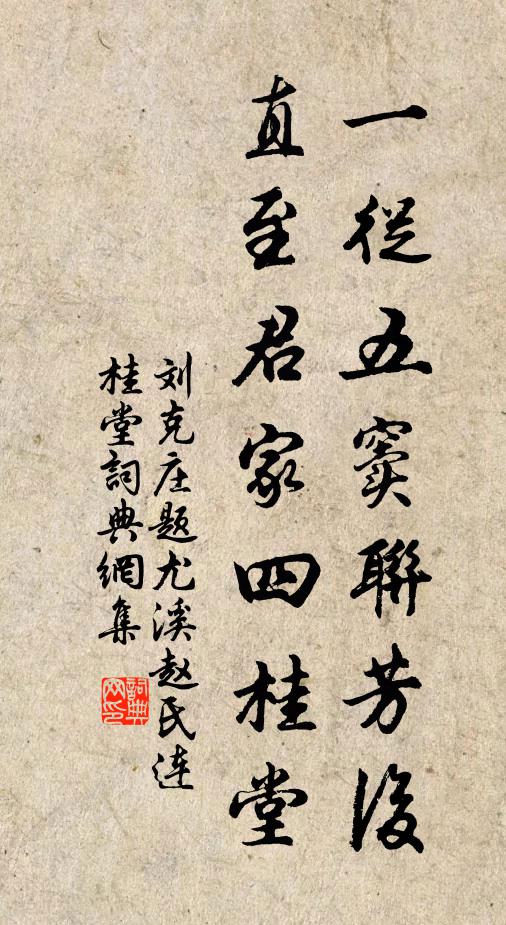 一從五竇聯芳後
直至君家四桂堂
刘克庄題尤溪赵氏连
桂堂詞典網集
詞典
网印